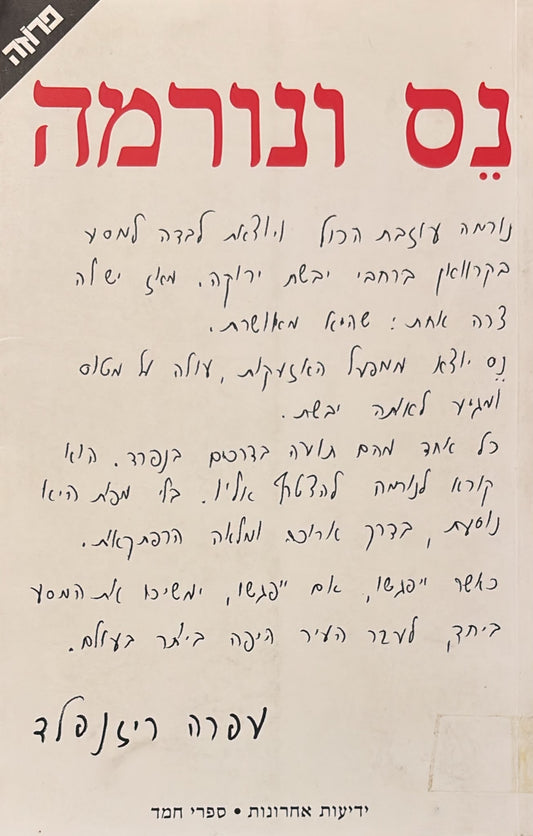 פרוזה
נֵס ונורמה
נורמה עוזבת הכול ויוצאת לבדה למסע
בקרוואן ברחבי יבשת ירוקה. מאז יש לה
צרה אחת: שהיא מאושרת.
נֵס יוצא ממפעל האזעקות, עולה על מטוס
ומגיע לאותה יבשת.
כל אחד מהם תועה בדרכים בנפרד. הוא
קורא לנורמה להצטרף אליו. בלי מפות היא
נוסעת, בדרך ארוכה ומלאה הרפתקאות.
כאשר ייפגשו, אם ייפגשו, ימשיכו את המסע
ביחד, לעבר העיר היפה ביותר בעולם.
עפרה ריזנפלד
ידיעות אחרונות • ספרי חמד